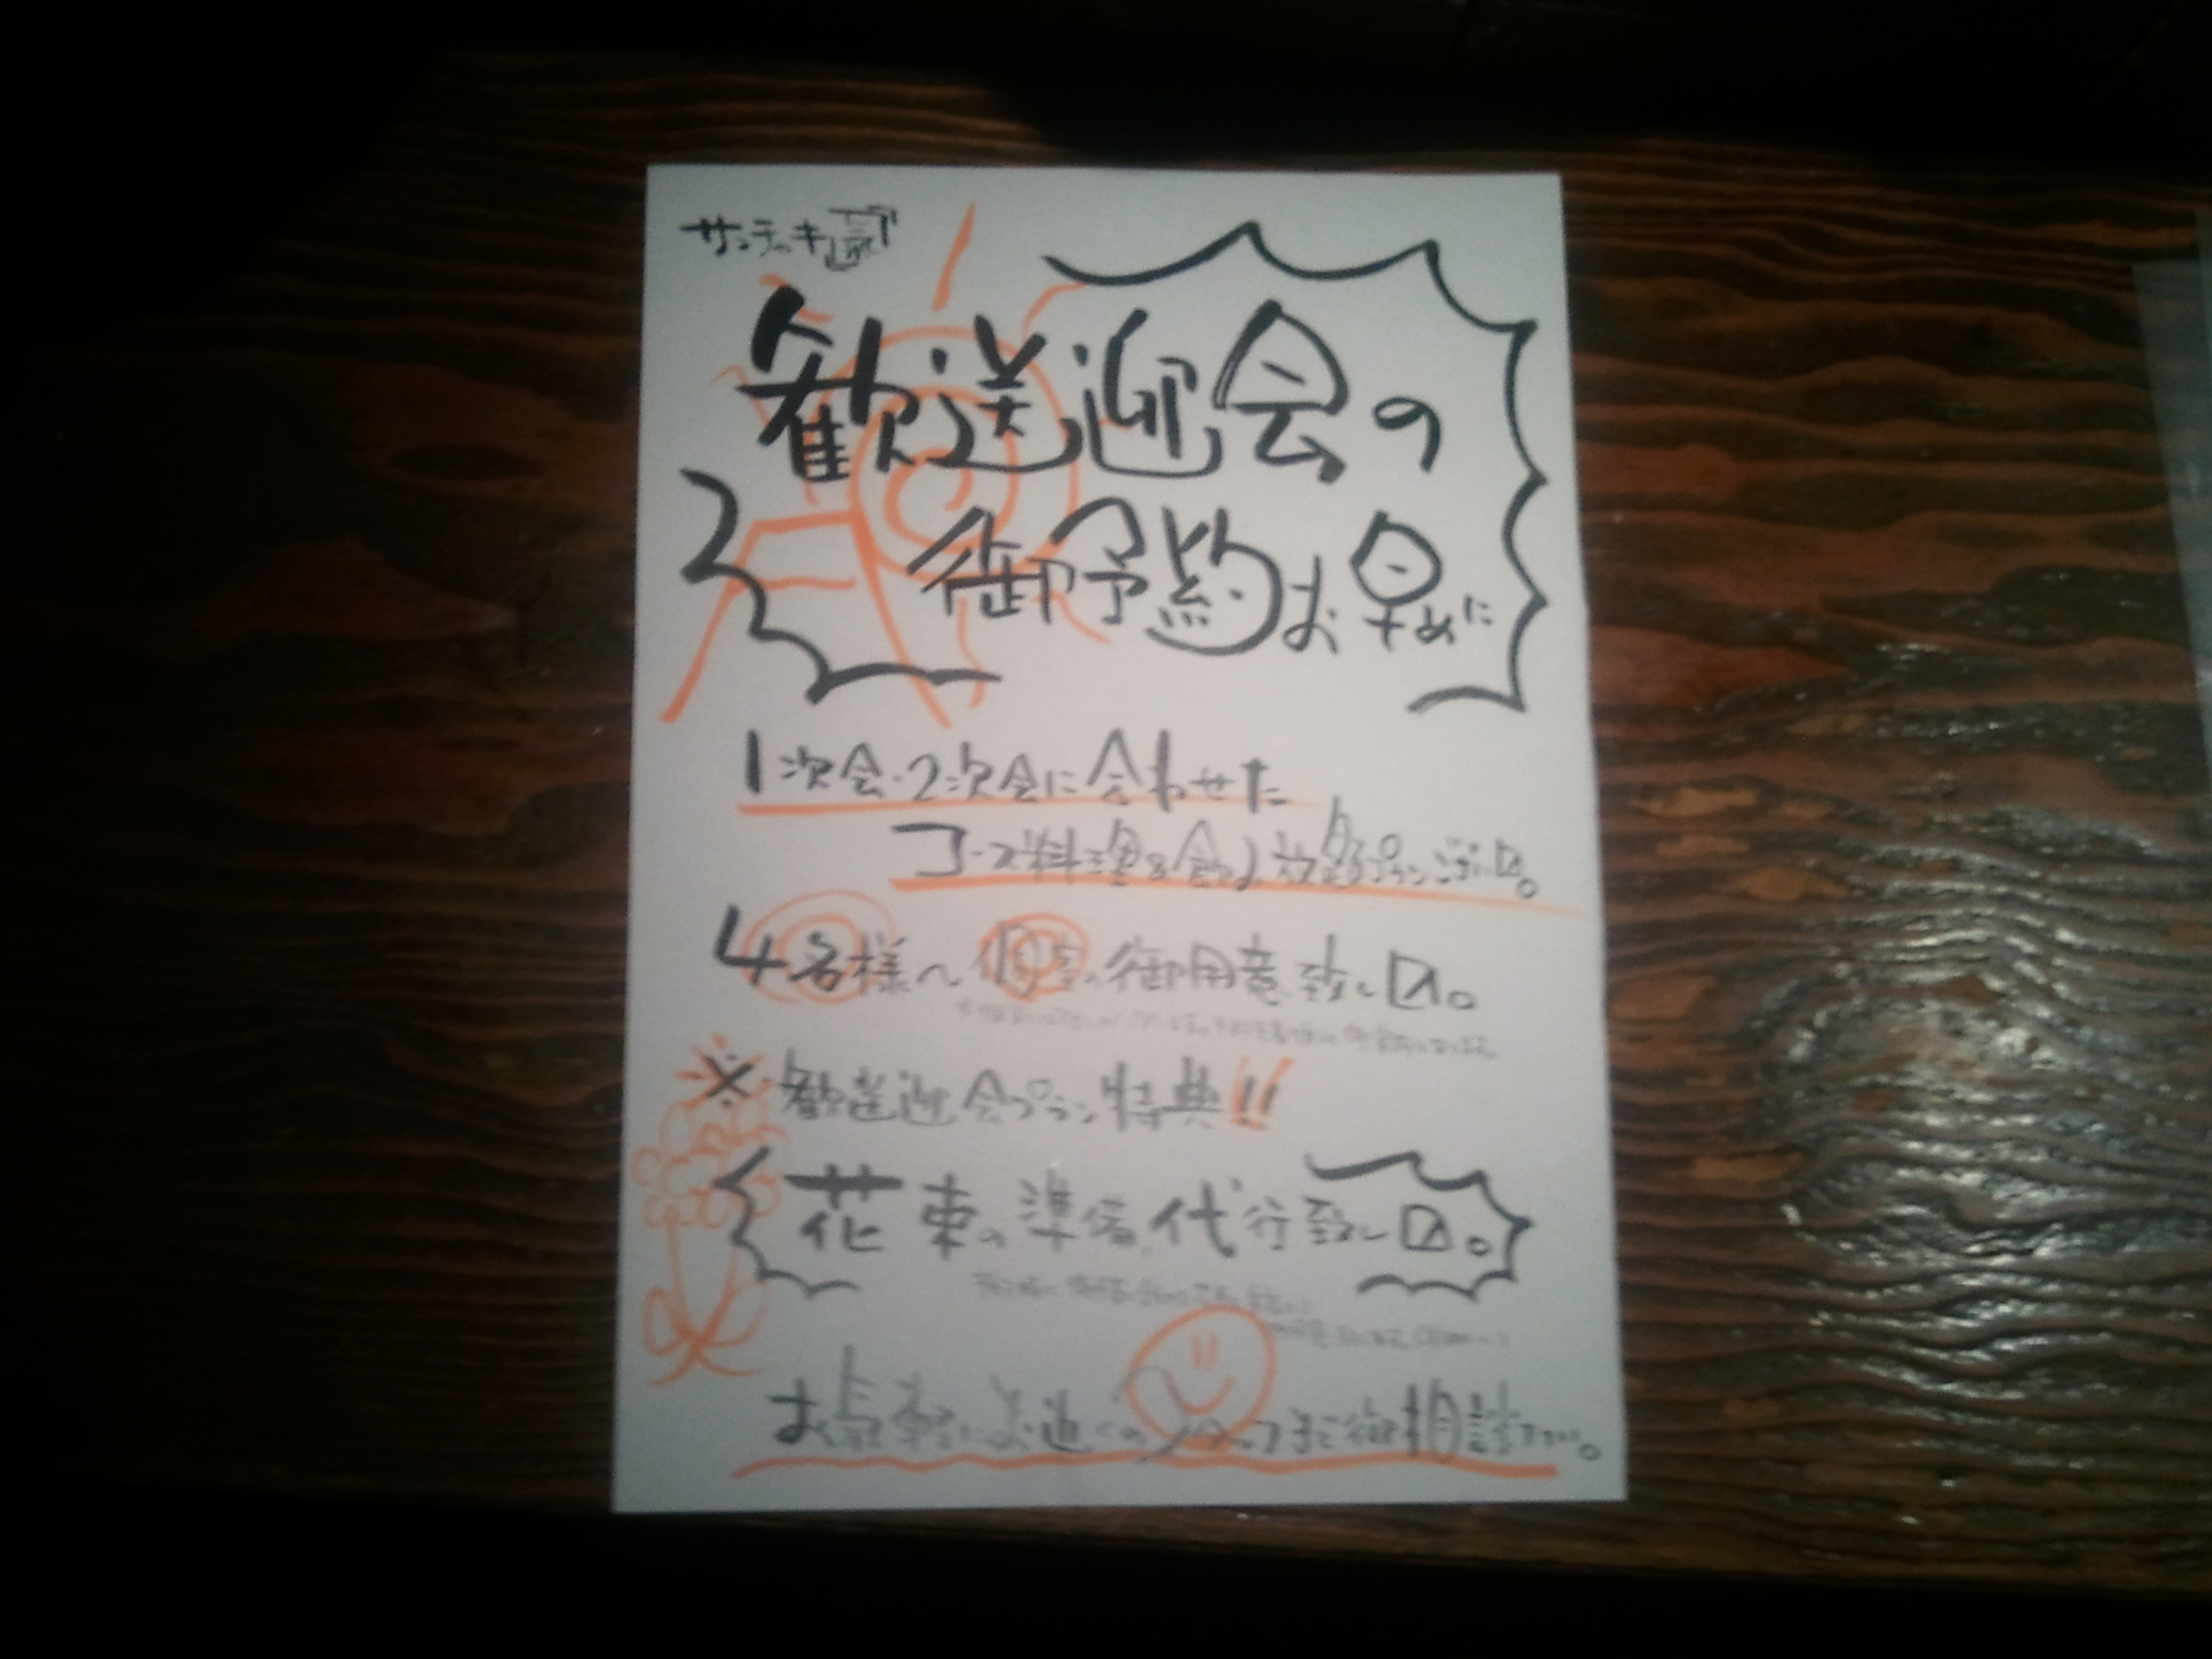 歓送迎会の
御予約お早めに
1次会・2次会に合わせた
コース料理&飲み放題プランござい〼。
4名様〜個室の御用意致し〼。
※歓送迎会プラン特典!!
花束の準備、代行致し〼。
お気軽にお近くのスタッフまで御相談下さい。